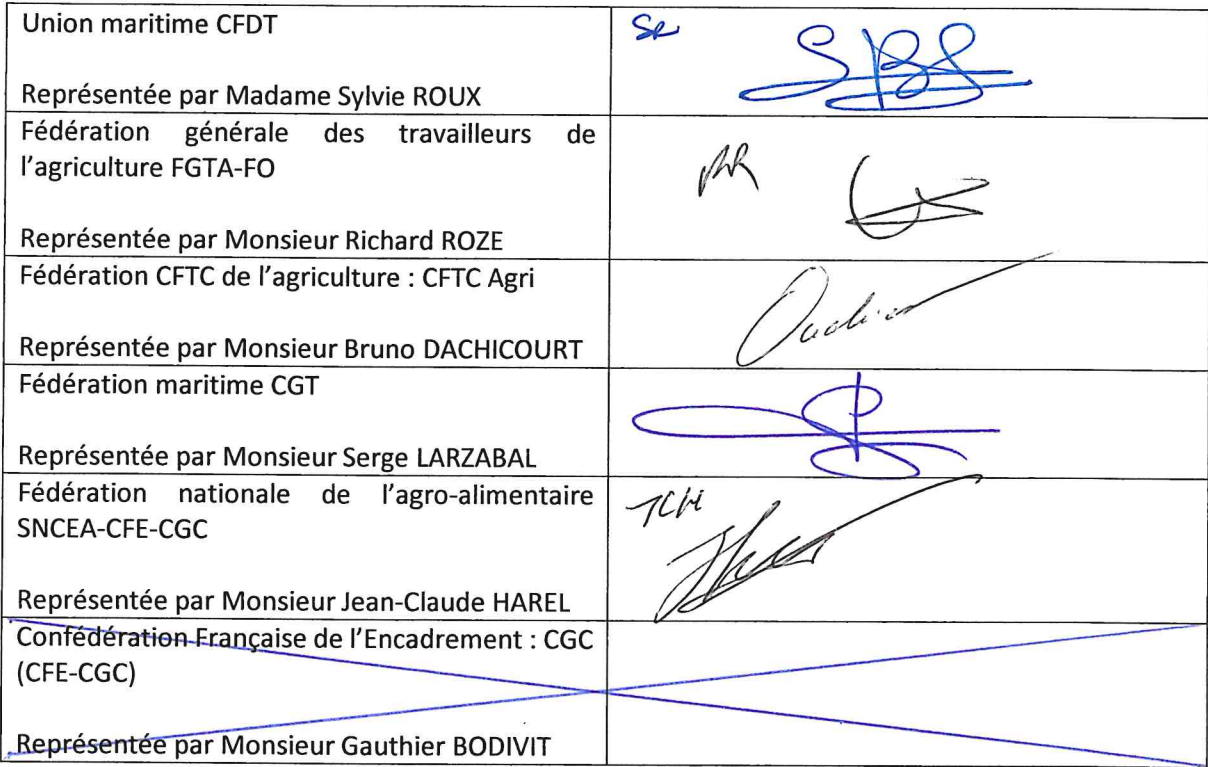 Union maritime CFDT
Représentée par Madame Sylvie ROUX
Fédération générale des travailleurs de
l'agriculture FGTA-FO
Représentée par Monsieur Richard ROZE
Fédération CFTC de l'agriculture : CFTC Agri
Représentée par Monsieur Bruno DACHICOURT
Fédération maritime CGT
Représentée par Monsieur Serge LARZABAL
Fédération nationale de l'agro-alimentaire
SNCEA-CFE-CGC
JCH
Représentée par Monsieur Jean-Claude HAREL
Confédération Française de l'Encadrement : CGC
(CFE-CGC)
Représentée par Monsieur Gauthier BODIVIT